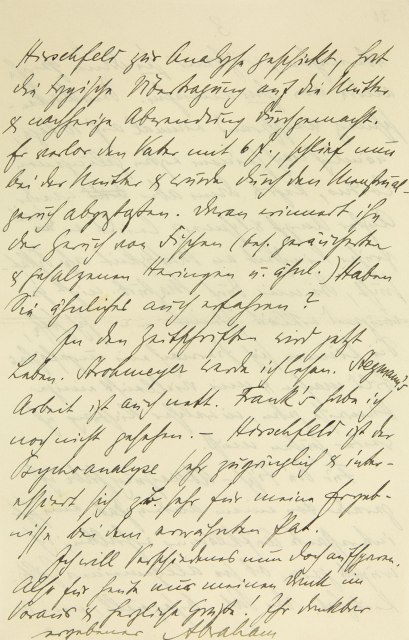 Hirschfeld zur Analyse geschickt, hat
die typische Übertragung auf die Mutter
& nachherige Abwendung durchgemacht.
Er verlor den Vater mit 6 J., schlief nun
bei der Mutter & wurde durch den Menstrual
geruch abgestoßen. Daran erinnert ihn
der Geruch von Fischen (bes. geräucherten
& gesalzenen Heringen u. ähnl.) Haben
Sie ähnliches auch erfahren?
In den Zeitschriften wird jetzt
Leben. Strohmeyer werde ich lesen. Stegmann's
Arbeit ist auch nett. Frank's habe ich
noch nicht gesehen. — Hirschfeld ist der
Psychoanalyse sehr zugänglich & inter-
essiert sich zB. sehr für meine Ergeb-
nisse bei dem erwähnten Pat.
Ich will Verschiedenes nun doch aufsparen.
Also für heute nur meinen Dank im
Voraus & herzliche Grüße! Ihr dankbar
ergebener Abraham